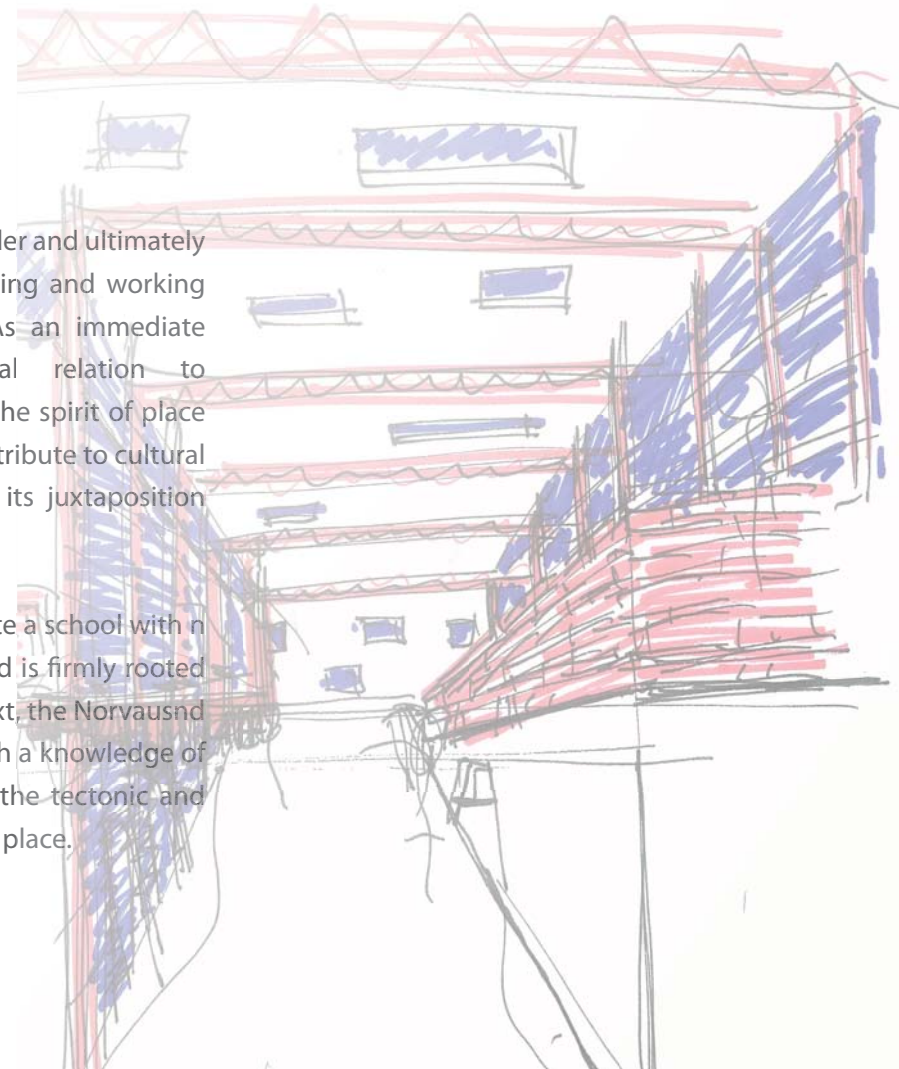 der and ultimately
ing and working
As an immediate
al relation to
he spirit of place
tribute to cultural
its juxtaposition
te a school with n
d is firmly rooted
xt, the Norvausnd
h a knowledge of
the tectonic and
place.